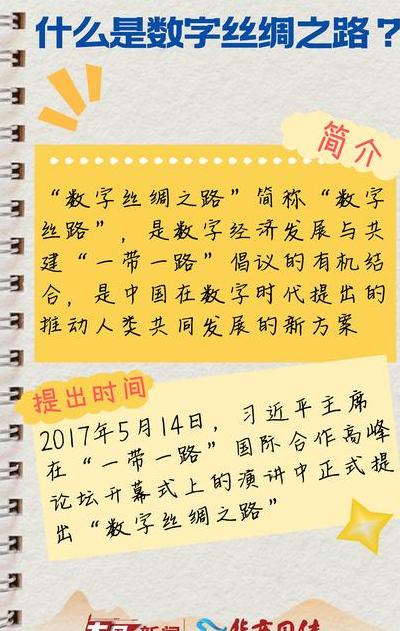 什么是数字丝绸之路？
简介
“数字丝绸之路”简称“数字
丝路”，是数字经济发展与共
建“一带一路”倡议的有机结
合，是中国在数字时代提出的
推动人类共同发展的新方案
提出时间
2017年5月14日，习近平主席
在“一带一路”国际合作高峰
论坛开幕式上的演讲中正式提
出“数字丝绸之路”